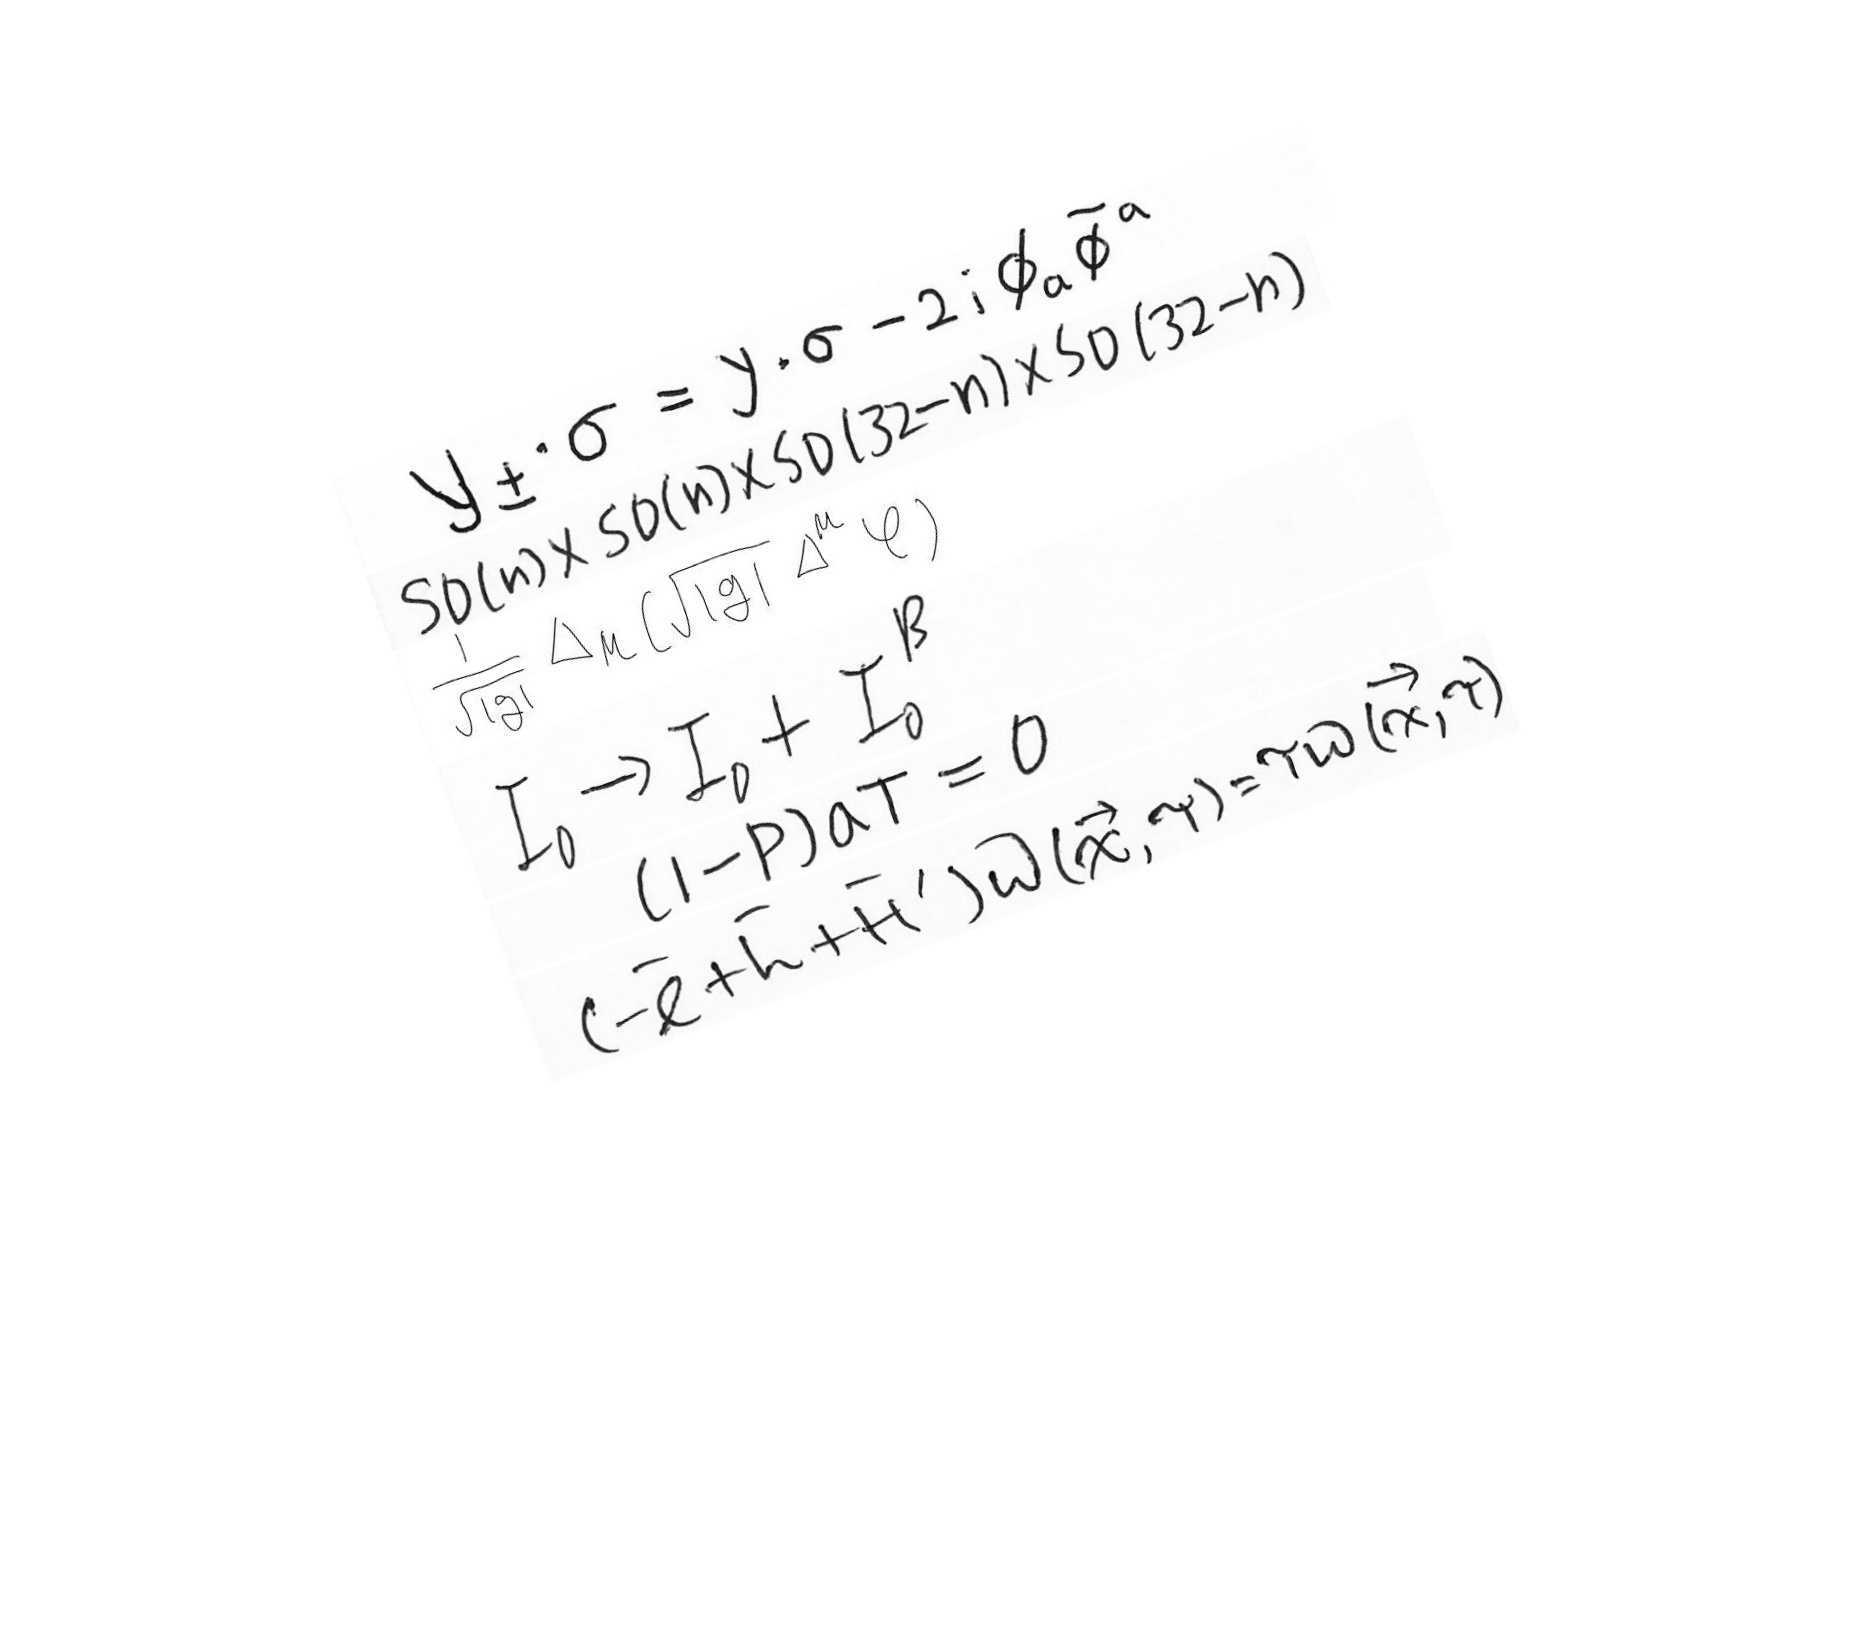 y_± · σ = y · σ − 2i ϕ_a ϕ̄^a
SO(n) × SO(n) × SO(32−n) × SO(32−n)
1/√|g| Δ_μ(√|g| Δ^μ φ)
I_0 → I_0 + I_0^β
(1−P)aT = 0
(−ē + h̄ + H̄′)ω(x⃗, τ) = τω(x⃗, τ)